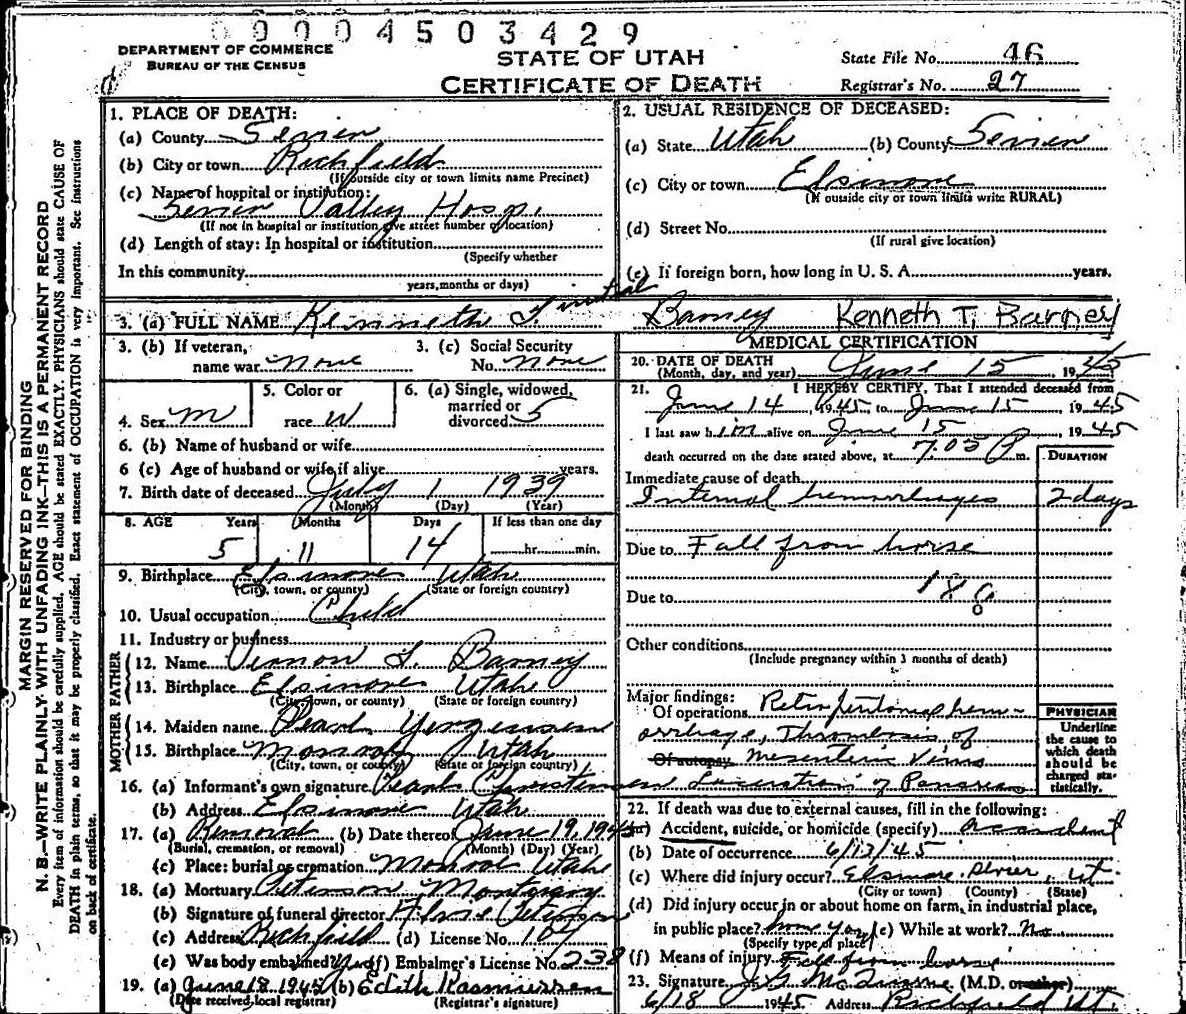 0 0 0 0 4 5 0 3 4 2 9
DEPARTMENT OF COMMERCE
BUREAU OF THE CENSUS
STATE OF UTAH
CERTIFICATE OF DEATH
State File No. 46
Registrar's No. 27
MARGIN RESERVED FOR BINDING
N. B.—WRITE PLAINLY WITH UNFADING INK—THIS IS A PERMANENT RECORD
Every item of information should be carefully supplied. AGE should be stated EXACTLY. PHYSICIANS should state CAUSE OF
DEATH in plain terms, so that it may be properly classified. Exact statement of OCCUPATION is very important. See instructions
on back of certificate.
1. PLACE OF DEATH:
(a) County Sevier
(b) City or town Richfield
(If outside city or town limits name Precinct)
(c) Name of hospital or institution:
Sevier Valley Hosp.
(If not in hospital or institution give street number or location)
(d) Length of stay: In hospital or institution
(Specify whether
In this community
years, months or days)
2. USUAL RESIDENCE OF DECEASED:
(a) State Utah (b) County Sevier
(c) City or town Elsinore
(If outside city or town limits write RURAL)
(d) Street No.
(If rural give location)
(e) If foreign born, how long in U. S. A. years.
3. (a) FULL NAME Kenneth T. initial Barney Kenneth T. Barney
3. (b) If veteran,
name war none
3. (c) Social Security
No. none
4. Sex M
5. Color or
race W
6. (a) Single, widowed,
married or
divorced S
6. (b) Name of husband or wife
6 (c) Age of husband or wife, if alive years.
7. Birth date of deceased July 1 1939
(Month) (Day) (Year)
8. AGE Years Months Days If less than one day
5 11 14 hr. min.
9. Birthplace Elsinore Utah
(City, town, or county) (State or foreign country)
10. Usual occupation Child
11. Industry or business
FATHER
12. Name Vernon L. Barney
13. Birthplace Elsinore Utah
(City, town, or county) (State or foreign country)
MOTHER
14. Maiden name Pearl
15. Birthplace Monroe Utah
(City, town, or county) (State or foreign country)
16. (a) Informant's own signature Pearl
(b) Address Elsinore Utah
17. (a) Removal (b) Date thereof June 19, 1945
(Burial, cremation, or removal) (Month) (Day) (Year)
(c) Place: burial or cremation Monroe Utah
18. (a) Mortuary Peterson Mortuary
(b) Signature of funeral director Peterson
(c) Address Richfield (d) License No. 167
(e) Was body embalmed? Yes (f) Embalmer's License No. 238
19. (a) June 18 1945 (b) Edith Rasmussen
(Date received, local registrar) (Registrar's signature)
MEDICAL CERTIFICATION
20. DATE OF DEATH June 15, 1945
(Month, day, and year)
21. I HEREBY CERTIFY, That I attended deceased from
June 14, 1945 to June 15 1945
I last saw him alive on June 15 1945
death occurred on the date stated above, at 7:05 P m.
DURATION
Immediate cause of death
Internal hemorrhages 2 days
Due to Fall from horse
Due to 186
Other conditions
(Include pregnancy within 3 months of death)
Major findings:
Of operations Retroperitoneal hem-
orrhage, Thrombosis of
Of autopsy Mesenteric Veins
and Laceration of Pancreas
PHYSICIAN
Underline
the cause to
which death
should be
charged sta-
tistically.
22. If death was due to external causes, fill in the following:
(a) Accident, suicide, or homicide (specify) Accident
(b) Date of occurrence 6/13/45
(c) Where did injury occur? Elsinore, Sevier, Ut.
(City or town) (County) (State)
(d) Did injury occur in or about home on farm, in industrial place,
in public place? (e) While at work? No
(Specify type of place)
(f) Means of injury Fall from horse
23. Signature (M.D. or other)
6/18 1945 Address Richfield Ut.